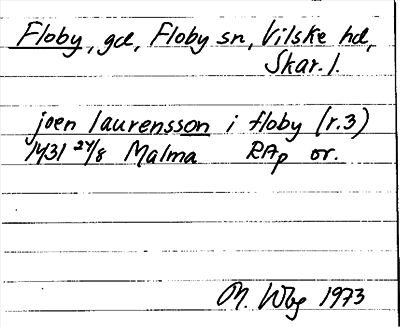 Floby, gd, Floby sn, Vilske hd,
Skar. l.
joen laurensson i floby (r.3)
1431 24/8 Malma RAp or.
M. Wbg 1973